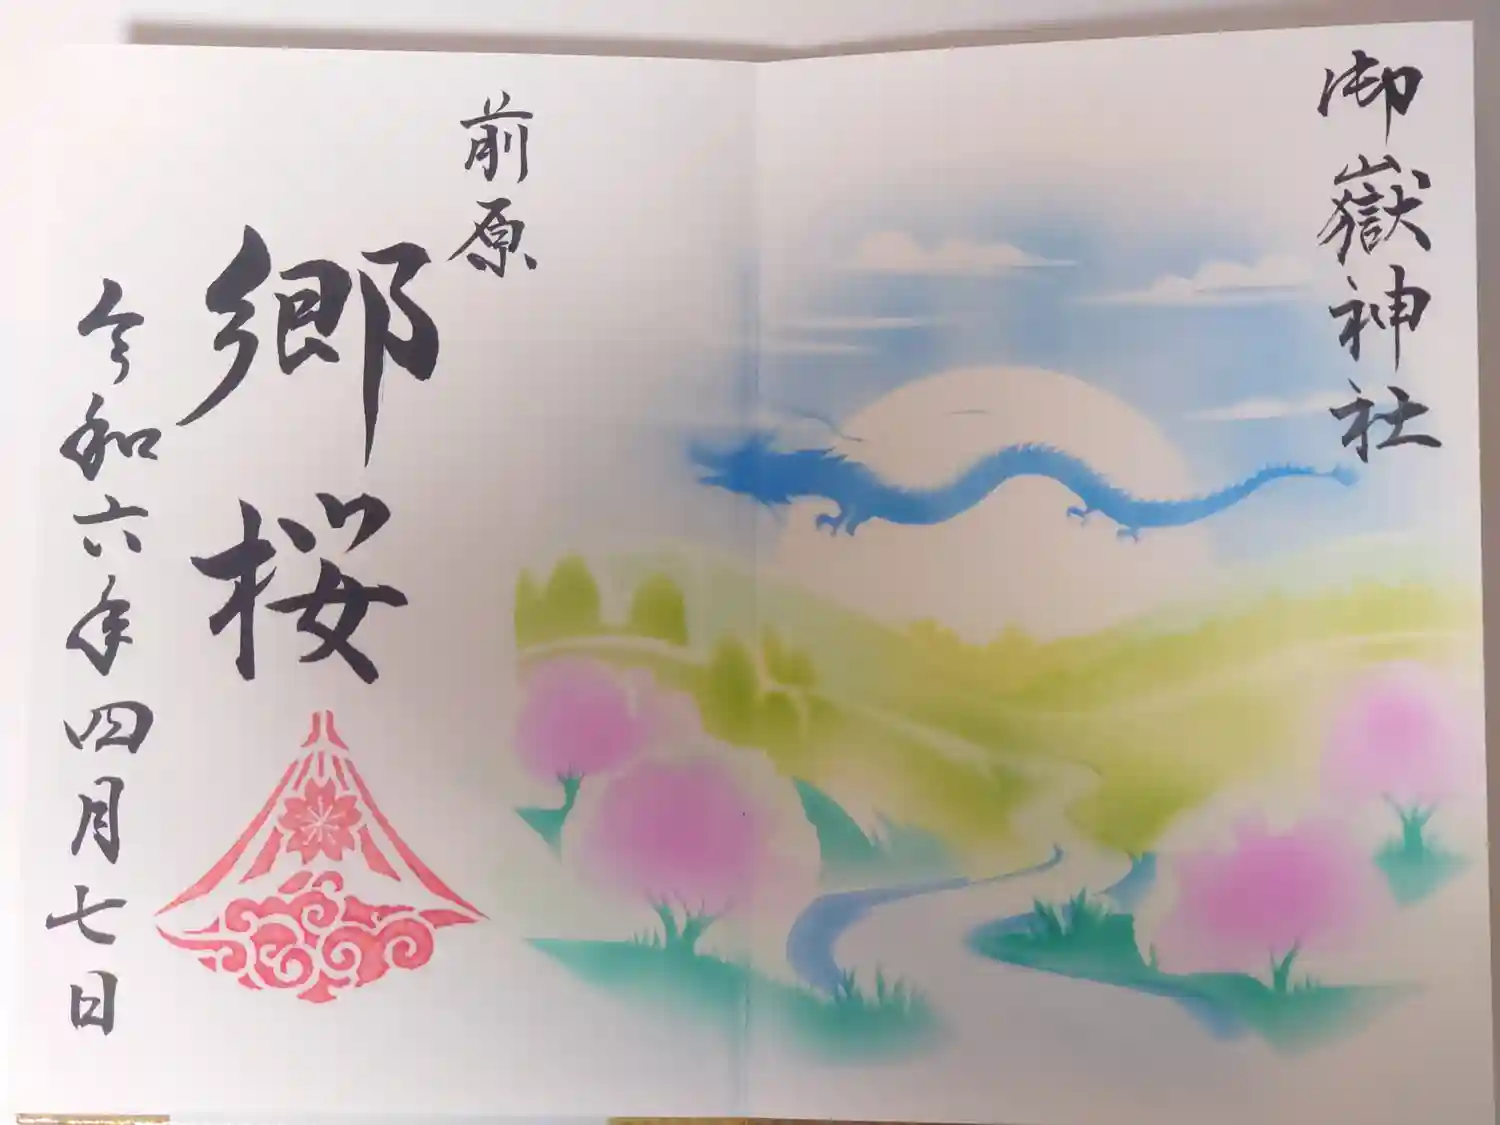 御嶽神社
前原
郷桜
令和六年四月七日